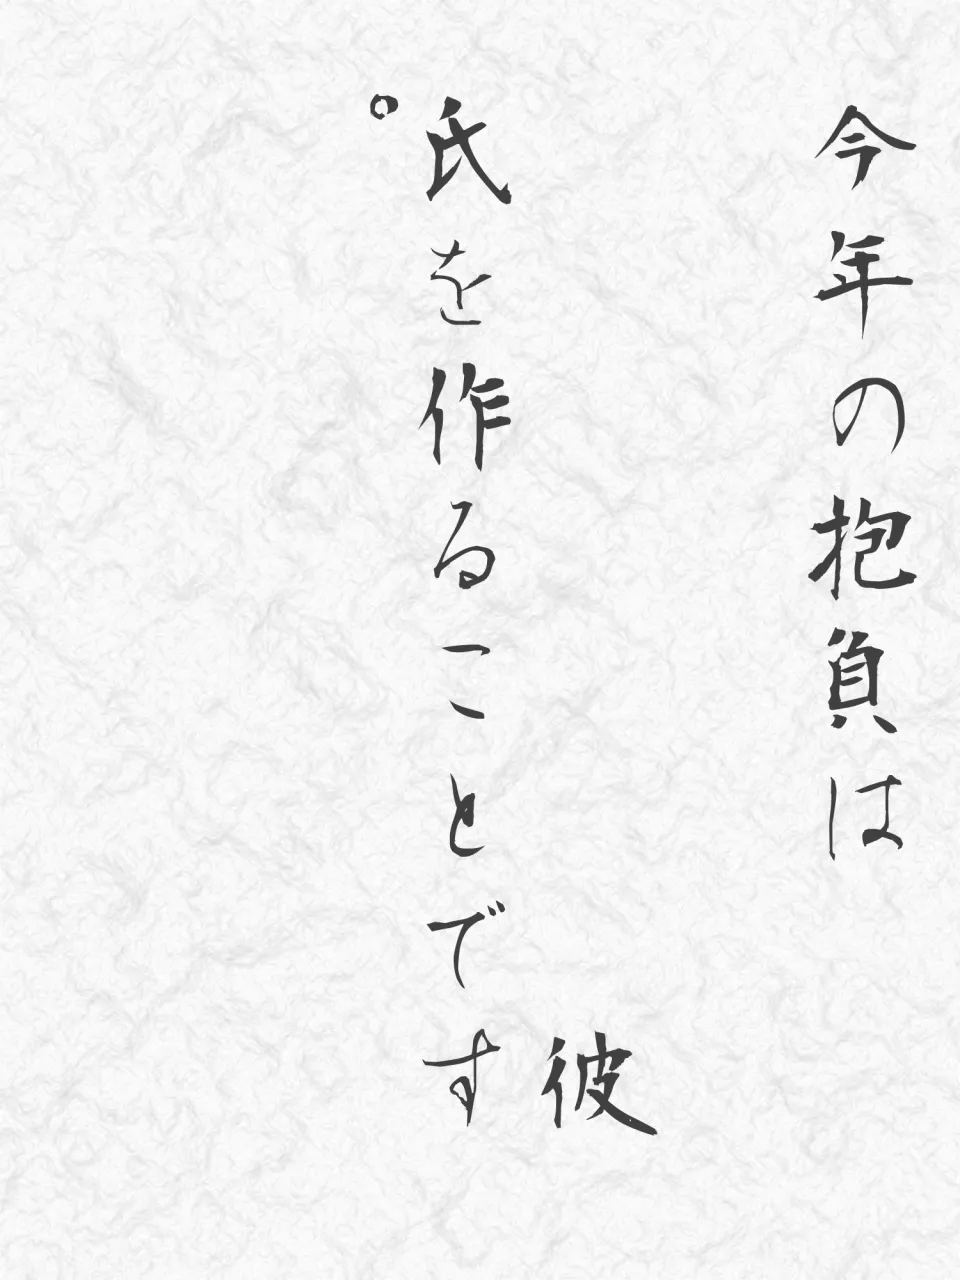 今年の抱負は
彼
氏を作ることです
。